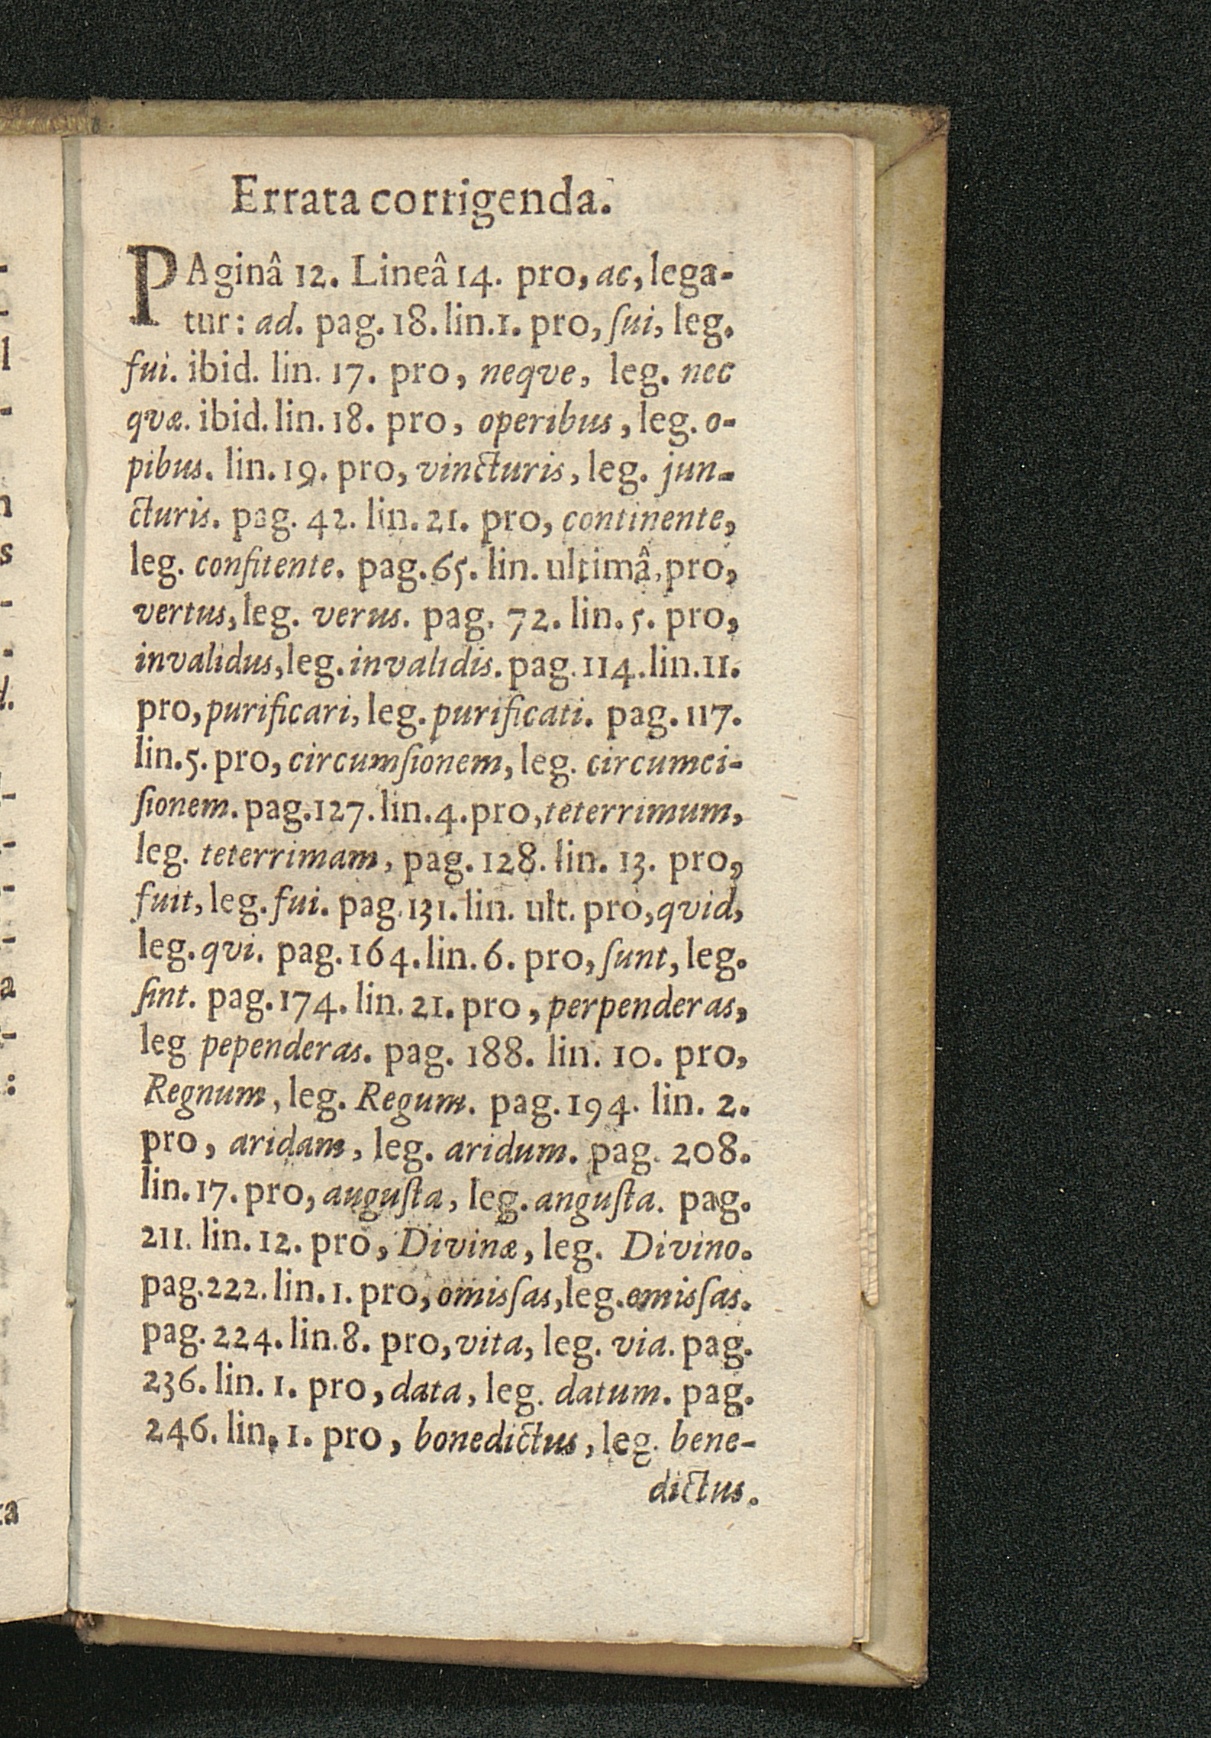 Errata corrigenda.
PAginâ 12. Lineâ 14. pro, ac, lega-
tur: ad. pag. 18. lin. 1. pro, ſui, leg.
fui. ibid. lin. 17. pro, neqve, leg. nec
qvæ. ibid. lin. 18. pro, operibus, leg. o-
pibus. lin. 19. pro, vincturis, leg. jun-
cturis. pag. 42. lin. 21. pro, continente,
leg. confitente. pag. 65. lin. ultimâ, pro,
vertus, leg. verus. pag. 72. lin. 5. pro,
invalidus, leg. invalidis. pag. 114. lin. 11.
pro, purificari, leg. purificati. pag. 117.
lin. 5. pro, circumſionem, leg. circumci-
ſionem. pag. 127. lin. 4. pro, teterrimum,
leg. teterrimam, pag. 128. lin. 13. pro,
fuit, leg. fui. pag. 131. lin. ult. pro, qvid,
leg. qvi. pag. 164. lin. 6. pro, ſunt, leg.
ſint. pag. 174. lin. 21. pro, perpenderas,
leg pependeras. pag. 188. lin. 10. pro,
Regnum, leg. Regum. pag. 194. lin. 2.
pro, aridam, leg. aridum. pag. 208.
lin. 17. pro, auguſta, leg. anguſta. pag.
211. lin. 12. pro, Divinæ, leg. Divino.
pag. 222. lin. 1. pro, omisſas, leg. emisſas.
pag. 224. lin. 8. pro, vita, leg. via. pag.
236. lin. 1. pro, data, leg. datum. pag.
246. lin. 1. pro, bonedictus, leg. bene-
dictus.